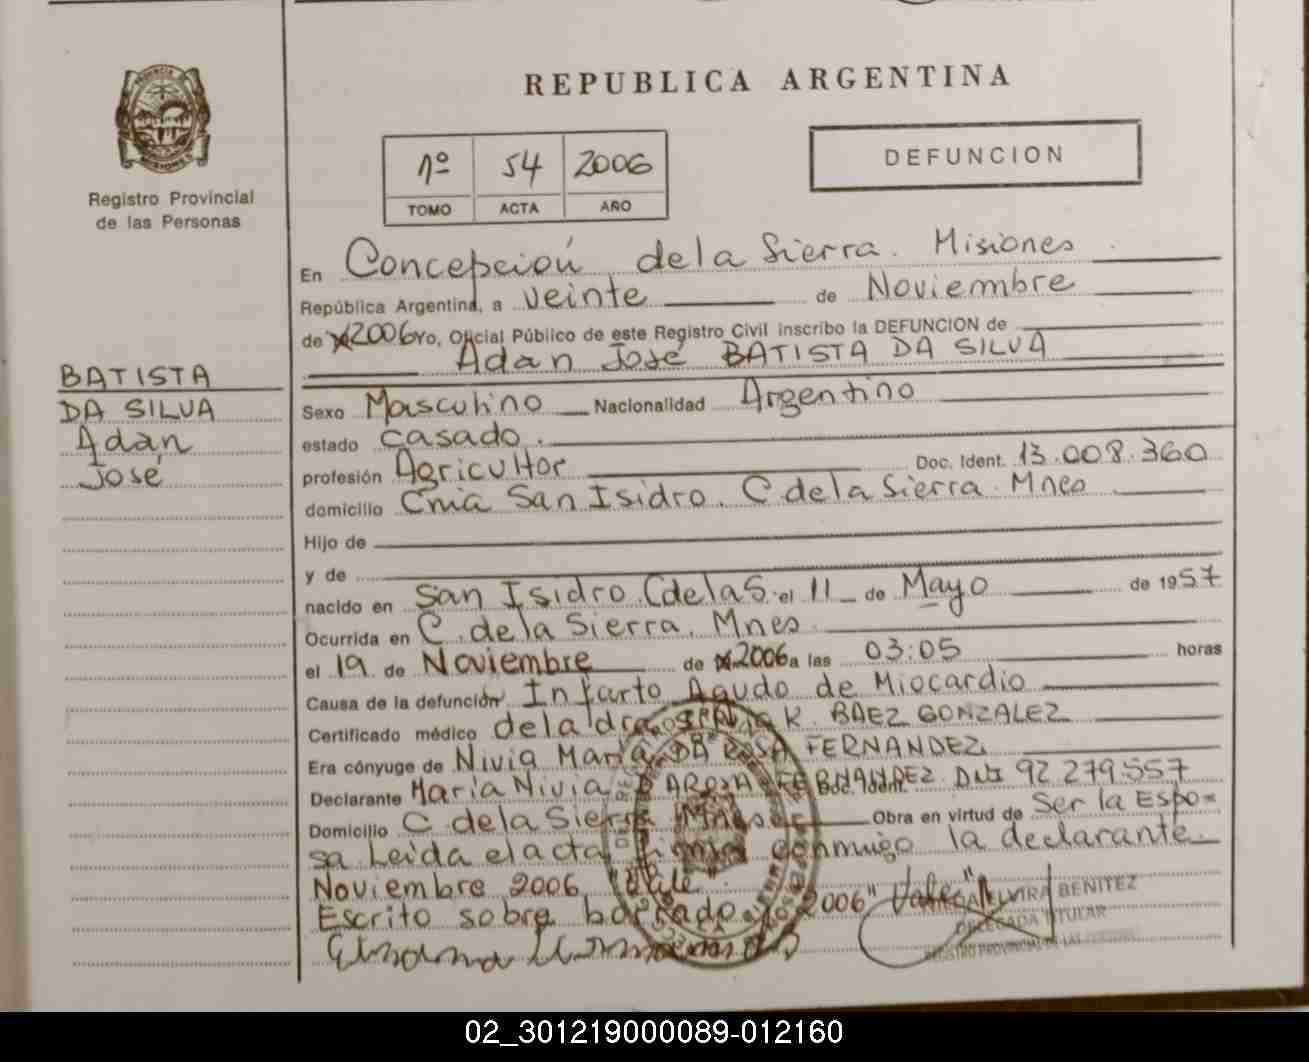 REPUBLICA ARGENTINA
PROVINCIA DE
MISIONES
Registro Provincial
de las Personas
nº 54 2006
TOMO ACTA AÑO
DEFUNCION
En Concepción de la Sierra. Misiones
República Argentina, a veinte de Noviembre
de 2006 yo, Oficial Público de este Registro Civil inscribo la DEFUNCION de
Adan José BATISTA DA SILVA
BATISTA
DA SILVA
Adán
José
Sexo Masculino Nacionalidad Argentino
estado casado.
profesión Agricultor Doc. Ident. 13.008.360
domicilio Cnia San Isidro. C de la Sierra. Mnes
Hijo de
y de
nacido en San Isidro. C de la S. el 11 de Mayo de 1957
Ocurrida en C. de la Sierra. Mnes
el 19 de Noviembre de 2006 a las 03:05 horas
Causa de la defunción Infarto Agudo de Miocardio
Certificado médico de la dra. K. BAEZ GONZALEZ
Era cónyuge de Nivia María DA ROSA FERNANDEZ
Declarante María Nivia DAROSA FERNANDEZ Doc. Ident. DNI 92.279.557
Domicilio C de la Sierra Mnes Obra en virtud de Ser la Espo=
sa Leida el acta firma conmigo la declarante
Noviembre 2006 "Vale"
Escrito sobre borrado 2006" Vale"
ELVIRA BENITEZ
DELEGADA TITULAR
REGISTRO PROVINCIAL DE LAS PERSONAS
02_301219000089-012160